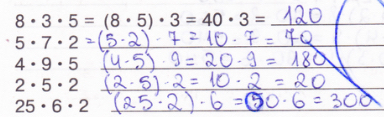 8 • 3 • 5 = (8 • 5) • 3 = 40 • 3 = 120
5 • 7 • 2 = (5 • 2) • 7 = 10 • 7 = 70
4 • 9 • 5 (4 • 5) • 9 = 20 • 9 = 180
2 • 5 • 2 (2 • 5) • 2 = 10 • 2 = 20
25 • 6 • 2 (25 • 2) • 6 = 50 • 6 = 300